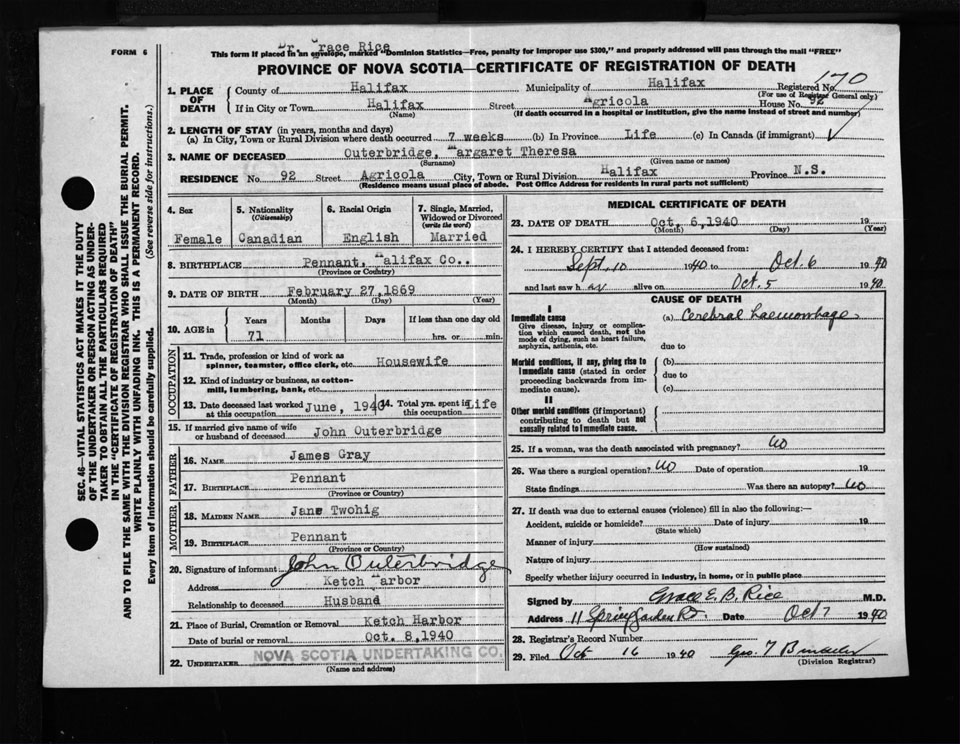 FORM 6
Dr. Grace Rice
This form if placed in an envelope, marked "Dominion Statistics—Free, penalty for improper use $300," and properly addressed will pass through the mail "FREE"
PROVINCE OF NOVA SCOTIA—CERTIFICATE OF REGISTRATION OF DEATH
170
1. PLACE OF DEATH
County of Halifax Municipality of Halifax Registered No.
(For use of Registrar General only)
If in City or Town Halifax Street Agricola House No. 92
(Name) (If death occurred in a hospital or institution, give the name instead of street and number)
2. LENGTH OF STAY (in years, months and days)
(a) In City, Town or Rural Division where death occurred 7 weeks (b) In Province Life (c) In Canada (if immigrant)
3. NAME OF DECEASED Outerbridge, Margaret Theresa
(Surname) (Given name or names)
RESIDENCE No. 92 Street Agricola City, Town or Rural Division Halifax Province N.S.
(Residence means usual place of abode. Post Office Address for residents in rural parts not sufficient)
4. Sex
Female
5. Nationality
(Citizenship)
Canadian
6. Racial Origin
English
7. Single, Married, Widowed or Divorced
(write the word)
Married
8. BIRTHPLACE Pennant, Halifax Co..
(Province or Country)
9. DATE OF BIRTH February 27,1869
(Month) (Day) (Year)
10. AGE in
Years Months Days If less than one day old
71 hrs. or min.
OCCUPATION
11. Trade, profession or kind of work as
spinner, teamster, office clerk, etc. Housewife
12. Kind of industry or business, as cotton-
mill, lumbering, bank, etc.
13. Date deceased last worked at this occupation June, 1940 14. Total yrs. spent in this occupation Life
15. If married give name of wife or husband of deceased John Outerbridge
FATHER
16. NAME James Gray
17. BIRTHPLACE Pennant
(Province or Country)
MOTHER
18. MAIDEN NAME Jane Twohig
19. BIRTHPLACE Pennant
(Province or Country)
20. Signature of informant John Outerbridge
Address Ketch Harbor
Relationship to deceased Husband
21. Place of Burial, Cremation or Removal Ketch Harbor
Date of burial or removal Oct. 8,1940
22. UNDERTAKER NOVA SCOTIA UNDERTAKING CO.
(Name and address)
MEDICAL CERTIFICATE OF DEATH
23. DATE OF DEATH Oct, 6,1940 19
(Month) (Day) (Year)
24. I HEREBY CERTIFY that I attended deceased from:
Sept. 10 1940 to Oct. 6 1940
and last saw her alive on Oct. 5 1940
CAUSE OF DEATH
I
Immediate cause
Give disease, injury or complication which caused death, not the mode of dying, such as heart failure, asphyxia, asthenia, etc.
(a) Cerebral haemorrhage
due to
Morbid conditions, if any, giving rise to immediate cause (stated in order proceeding backwards from immediate cause).
(b)
due to
(c)
II
Other morbid conditions (if important) contributing to death but not causally related to immediate cause.
25. If a woman, was the death associated with pregnancy? No
26. Was there a surgical operation? No Date of operation 19
State findings Was there an autopsy? No
27. If death was due to external causes (violence) fill in also the following:—
Accident, suicide or homicide? Date of injury 19
(State which)
Manner of injury
(How sustained)
Nature of injury
Specify whether injury occurred in industry, in home, or in public place
Signed by Grace E. B. Rice M.D.
Address 11 Spring Garden Rd. Date Oct 7 1940
28. Registrar's Record Number
29. Filed Oct 16 1940 Geo. T
(Division Registrar)
SEC. 46—VITAL STATISTICS ACT MAKES IT THE DUTY
OF THE UNDERTAKER OR PERSON ACTING AS UNDER-
TAKER TO OBTAIN ALL THE PARTICULARS REQUIRED
IN THE "CERTIFICATE OF REGISTRATION OF DEATH"
AND TO FILE THE SAME WITH THE DIVISION REGISTRAR WHO SHALL ISSUE THE BURIAL PERMIT.
WRITE PLAINLY WITH UNFADING INK. THIS IS A PERMANENT RECORD.
Every item of information should be carefully supplied. (See reverse side for instructions.)